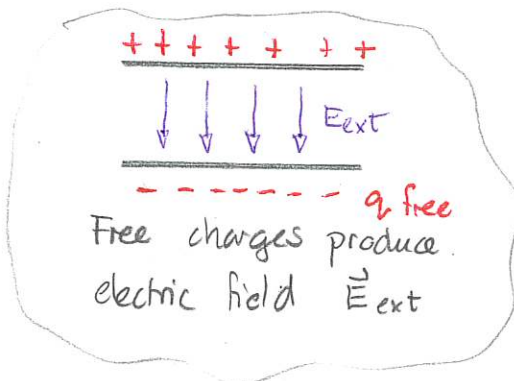 + + + + + + +
E ext
- - - - - - -
q free
Free charges produce
electric field E⃗ ext